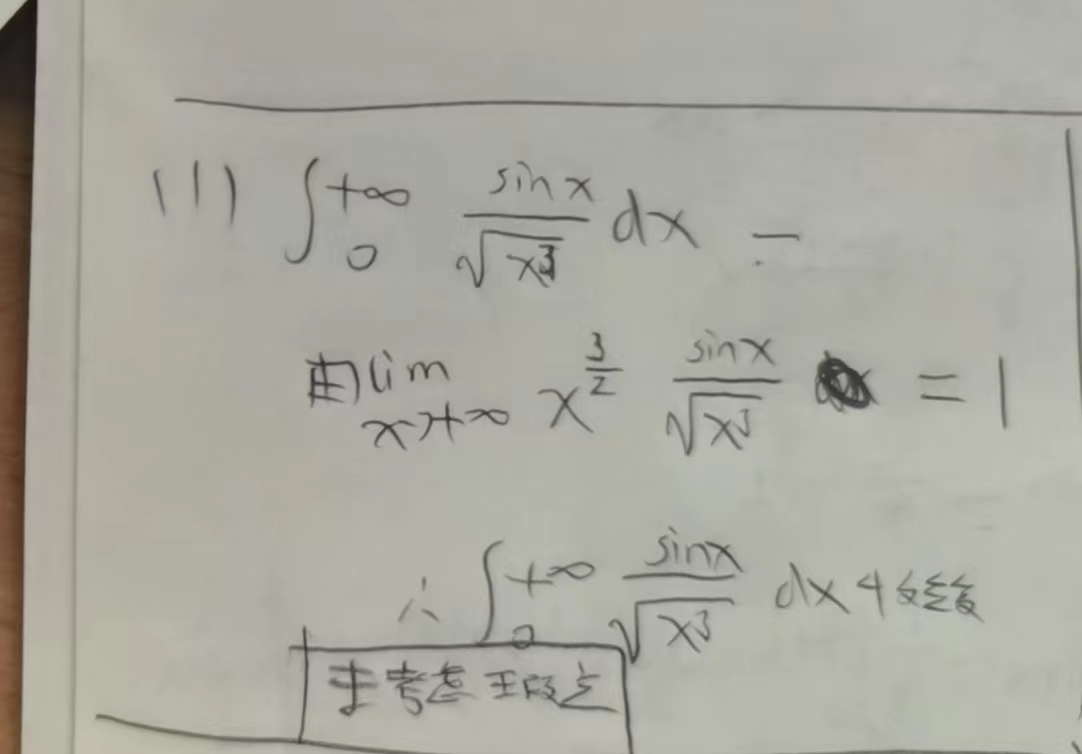 (1) ∫₀^{+∞} sinx/√x³ dx =
由 lim_{x→+∞} x^{3/2} sinx/√x³ = 1
∴ ∫₀^{+∞} sinx/√x³ dx 收敛
未考虑